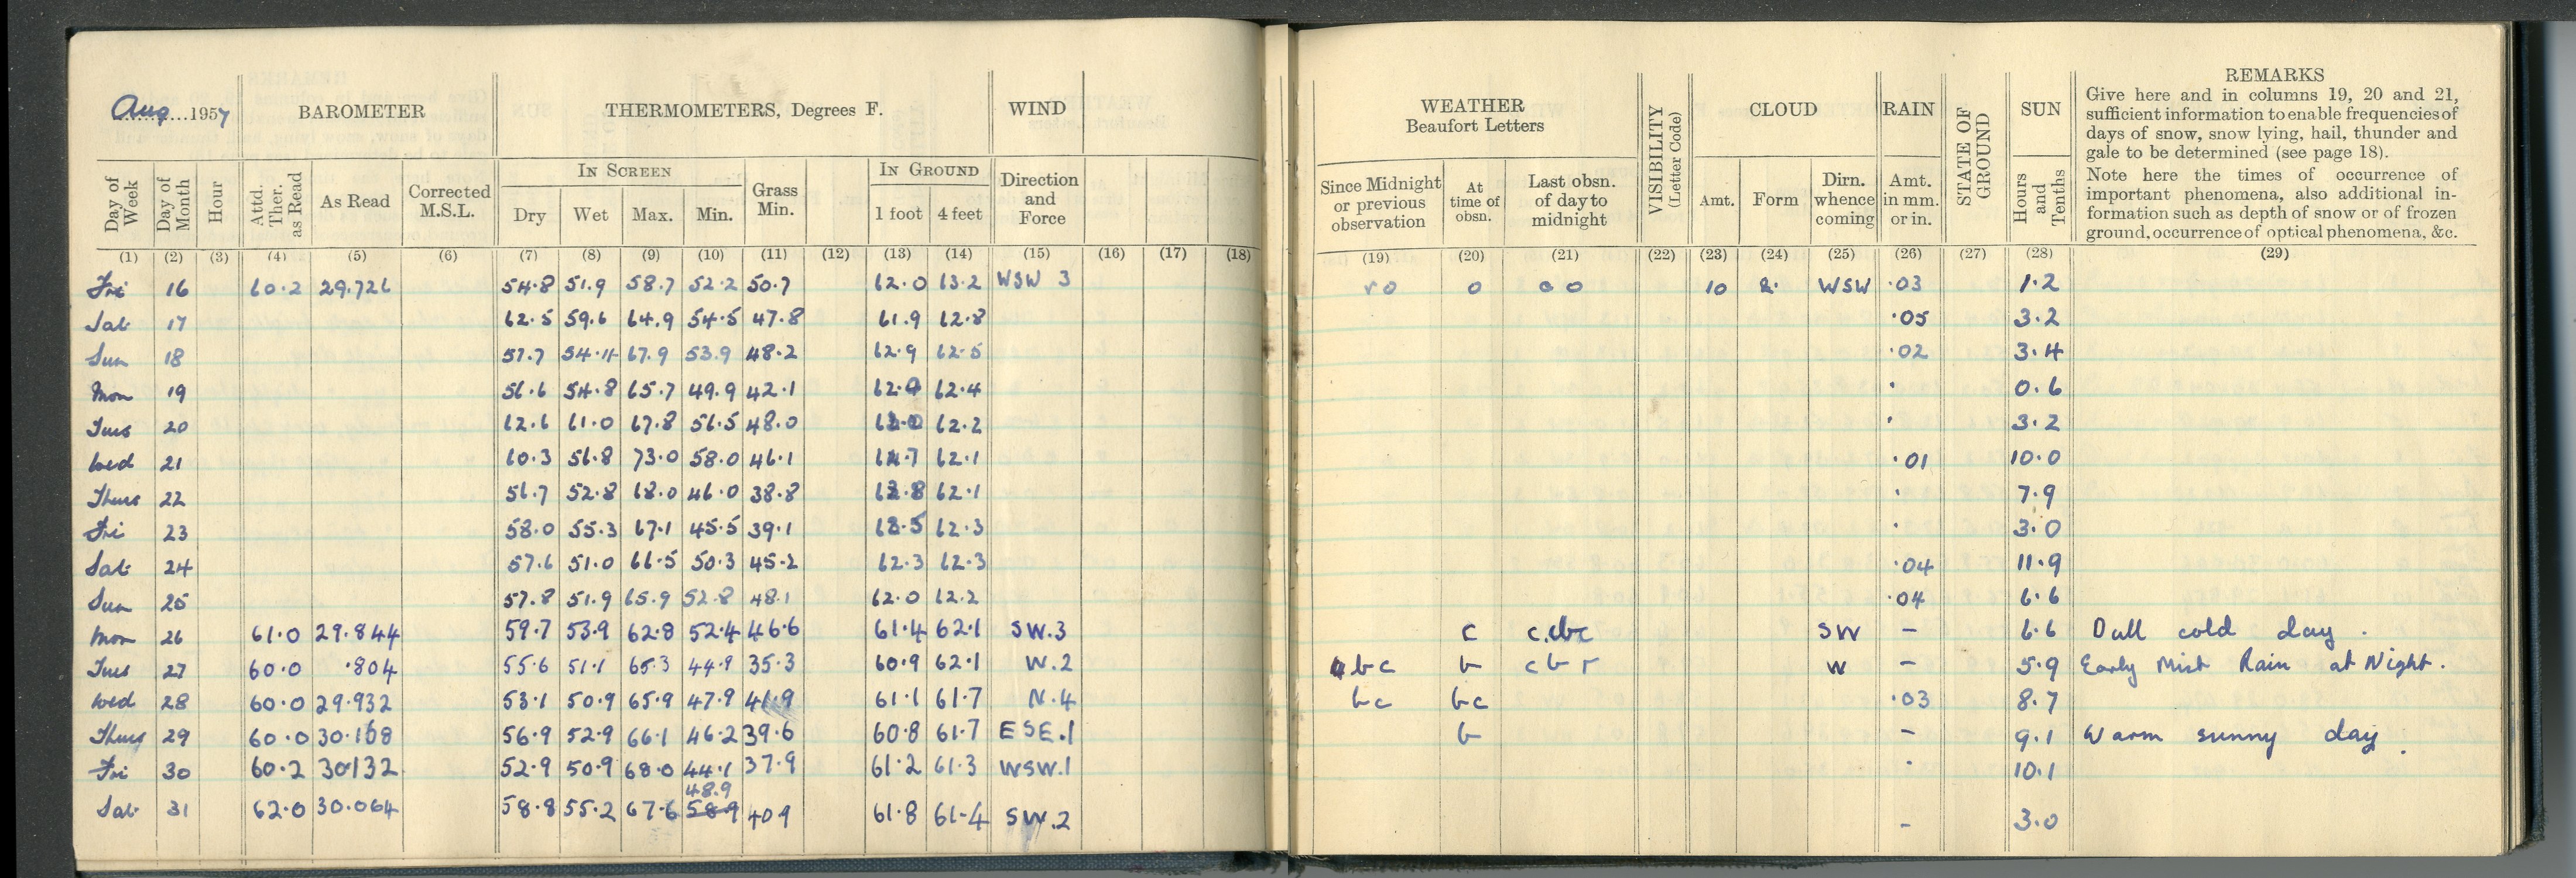 Aug 1957
BAROMETER
THERMOMETERS, Degrees F.
WIND
Day of Week
Day of Month
Hour
Attd. Ther. as Read
As Read
Corrected M.S.L.
IN SCREEN
Dry
Wet
Max.
Min.
Grass Min.
IN GROUND
1 foot
4 feet
Direction and Force
(1) (2) (3) (4) (5) (6) (7) (8) (9) (10) (11) (12) (13) (14) (15) (16) (17) (18)
Fri 16 60.2 29.726 54.8 51.9 58.7 52.2 50.7 62.0 63.2 WSW 3
Sat 17 62.5 59.6 64.9 54.5 47.8 61.9 62.8
Sun 18 57.7 54.4 67.9 53.9 48.2 62.9 62.5
Mon 19 56.6 54.8 65.7 49.9 42.1 62.4
Tues 20 62.6 61.0 67.8 56.5 48.0 62.2
Wed 21 60.3 56.8 73.0 58.0 46.1 62.1
Thurs 22 56.7 52.8 68.0 46.0 38.8 62.1
Fri 23 58.0 55.3 67.1 45.5 39.1 62.3
Sat 24 57.6 51.0 66.5 50.3 45.2 62.3 62.3
Sun 25 57.8 51.9 65.9 52.8 48.1 62.0 62.2
Mon 26 61.0 29.844 59.7 53.9 62.8 52.4 46.6 61.4 62.1 SW.3
Tues 27 60.0 .804 55.6 51.1 65.3 44.9 35.3 60.9 62.1 W.2
Wed 28 60.0 29.932 53.1 50.9 65.9 47.9 41.9 61.1 61.7 N.4
Thurs 29 60.0 30.168 56.9 52.9 66.1 46.2 39.6 60.8 61.7 ESE.1
Fri 30 60.2 30132 52.9 50.9 68.0 44.1 37.9 61.2 61.3 WSW.1
48.9
Sat 31 62.0 30.064 58.8 55.2 67.6 58.9 409 61.8 61.4 SW.2
WEATHER
Beaufort Letters
VISIBILITY (Letter Code)
CLOUD
RAIN
STATE OF GROUND
SUN
REMARKS
Give here and in columns 19, 20 and 21,
sufficient information to enable frequencies of
days of snow, snow lying, hail, thunder and
gale to be determined (see page 18).
Note here the times of occurrence of
important phenomena, also additional in-
formation such as depth of snow or of frozen
ground, occurrence of optical phenomena, &c.
Since Midnight or previous observation
At time of obsn.
Last obsn. of day to midnight
Amt.
Form
Dirn. whence coming
Amt. in mm. or in.
Hours and Tenths
(19) (20) (21) (22) (23) (24) (25) (26) (27) (28) (29)
ro o o o 10 WSW .03 1.2
.05 3.2
.02 3.4
. 0.6
. 3.2
.01 10.0
. 7.9
. 3.0
.04 11.9
.04 6.6
c SW – 6.6 Dull cold day .
bc b c b r W – 5.9 Early Mist Rain at Night .
bc bc .03 8.7
b – 9.1 Warm sunny day .
. 10.1
– 3.0